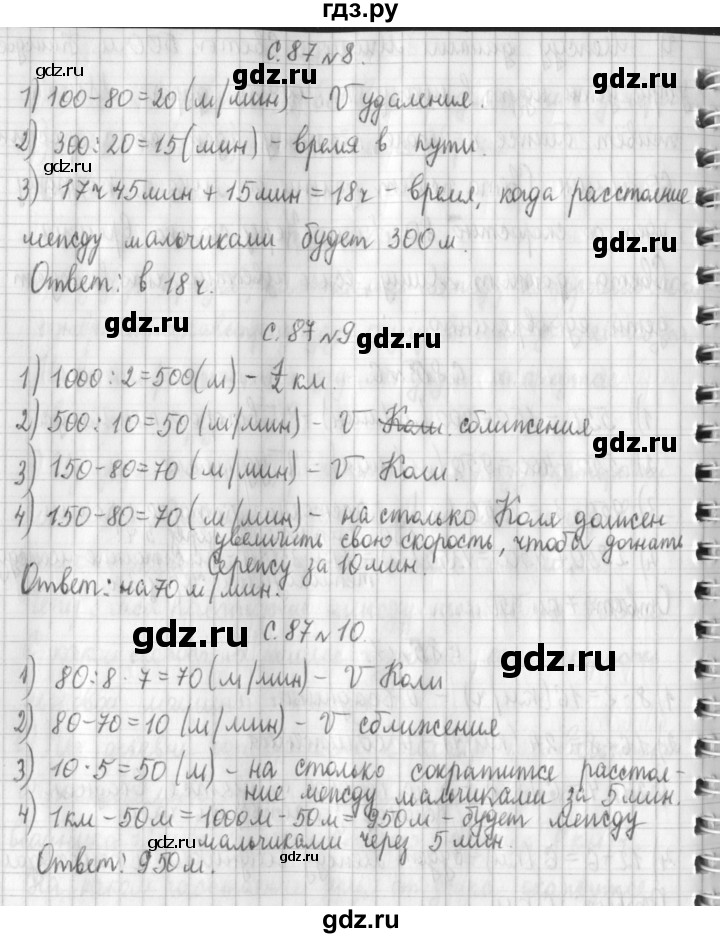 гдз.ру
С. 87 № 8.
gdz.ru gdz.ru gdz.ru
1) 100-80=20 (м/мин) - V удаления.
2) 300:20=15 (мин) - время в пути.
gdz.ru gdz.ru
3) 17ч 45мин + 15мин = 18ч - время, когда расстояние
между мальчиками будет 300м.
gdz.ru
Ответ: в 18ч.
gdz.ru
С. 87 № 9
gdz.ru
1) 1000:2=500(м) - 1/2 км.
2) 500:10=50 (м/мин) - V Коли. сближения
gdz.ru
3) 150-80=70 (м/мин) - V Коли.
4) 150-80=70 (м/мин) - на столько Коля должен
увеличить свою скорость, чтобы догнать
Серёжу за 10мин.
Ответ: на 70 м/мин.
gdz.ru
С. 87 № 10.
gdz.ru
1) 80:8·7=70 (м/мин) - V Коли
2) 80-70=10 (м/мин) - V сближения
3) 10·5=50 (м) - на столько сократится расстоя-
ние между мальчиками за 5мин.
gdz.ru gdz.ru
4) 1км - 50м = 1000м - 50м = 950м - будет между
мальчиками через 5 мин.
Ответ: 950м.
gdz.ru gdz.ru
gdz.ru